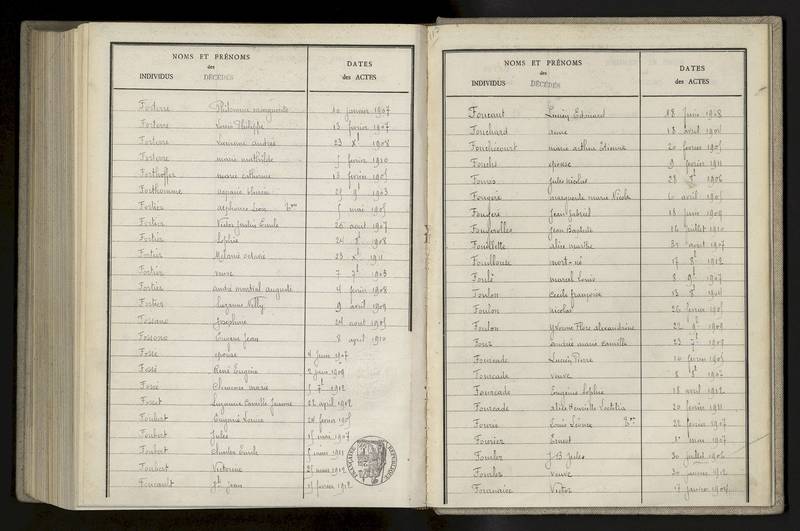 NOMS ET PRÉNOMS
des
INDIVIDUS DÉCÉDÉS
DATES
des ACTES
Forterre Philomène marguerite 10 janvier 1907
Forterre Louis Philippe 13 fevrier 1907
Forterre andrée 23 Xᵇ 1908
Forterre marie mathilde fevrier 1910
Forthoffer marie catherine 13 fevrier 1905
Forthomme 25 9ᵇ 1903
Fortier alphonse Leon 5 mai 1905
Fortier Victor Jules Emile 26 aout 1907
Fortier Sophie 24 1908
Fortier Melanie octavie 23 Xᵇ 1911
Fortier veuve 7 7ᵇ 1903
Fortier andré martial auguste 4 fevrier 1908
Fortier Suzanne Nelly 9 avril 1909
Foscano Josephine 24 aout 1905
Fossono Eugene Jean 8 avril 1910
Fosse epouse 4 juin 1907
Fossé René Eugène 2 juin 1909
Fossé Clemence marie 5 7ᵇ 1912
Suzanne Camille Jeanne 22 avril 1902
Foubert Louise 24 fevrier 1905
Foubert Jules 15 mai 1907
Foubert Charles Emile mai 1911
Foubert Victorine 25 1912
Foucault Jean fevrier 1912
NOMS ET PRÉNOMS
des
INDIVIDUS DÉCÉDÉS
DATES
des ACTES
Foucaut Lucien Edouard 18 Juin 1908
Fouchard anne 13 avril 1904
Fouchecourt marie arthur Etienne 20 fevrier 1905
Fouché epouse 9 fevrier 1911
Jules nicolas 28 1906
Fougere marguerite marie Nicole 6 avril 1905
Jean Gabriel 18 juin 1909
Fougerolles Jean Baptiste 16 juillet 1910
Fouillette alice marthe 31 aout 1907
Fouillouse mort-né 17 8ᵇ 1912
Foulé marcel Louis 8 9ᵇ 1907
Foulon Cecile françoise 13 8ᵇ 1904
Foulon nicolas 26 fevrier 1905
Foulon Yvonne Flore alexandrine 22 9ᵇ 1909
andrée marie camille 23 7ᵇ 1909
Fourcade Lucien Pierre 10 fevrier 1905
Fourcade veuve 8 1907
Fourcade Eugenie Sophie 18 avril 1912
Fourcade alice Henriette Laetitia 20 fevrier 1911
Louis 22 fevrier 1907
Fourier Ernest 1ᵉʳ mai 1907
J. B. Jules 30 juillet 1906
veuve 30 janvier 1912
Fournaise Victor 17 janvier 1904